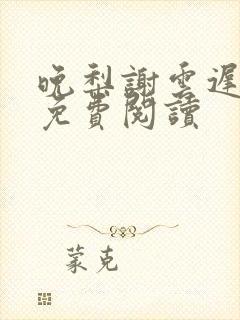 晚梨謝雲遲
免費閱讀
蒙克